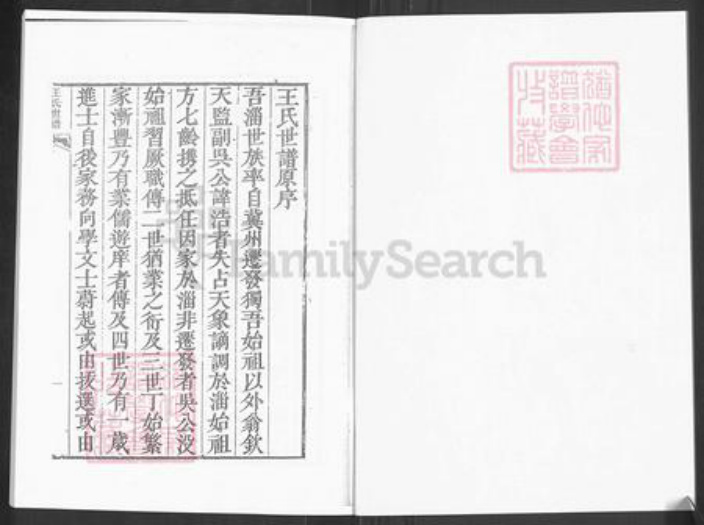 王氏世譜原序
吾淄世族率自冀州遷發獨吾始祖以外翁欽
天監副吳公諱浩者失占天象謫調於淄始祖
方七齡携之抵任因家於淄非遷發者吳公没
始祖習厥職傳二世猶業之衍及三世丁始繁
家漸豐乃有業儒遊庠者傳及四世乃有一歲
進士自後家務向學文士蔚起或由拔選或由
王氏世譜
一
猶他家
譜學會
收藏
FamilySearch